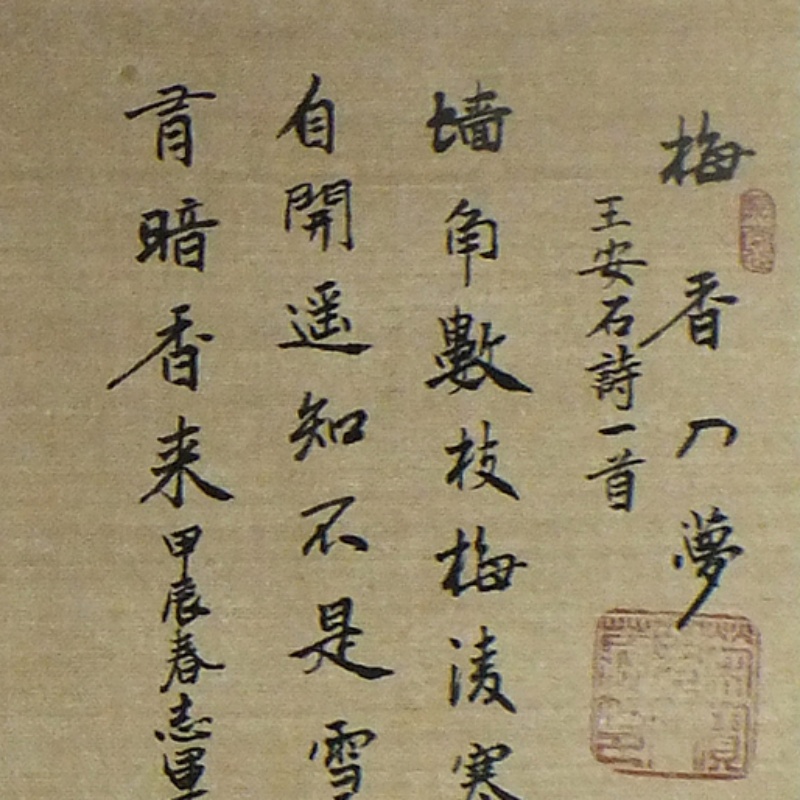 梅香入夢
王安石詩一首
墙角數枝梅淩寒
自開遥知不是雪
有暗香来甲辰春志